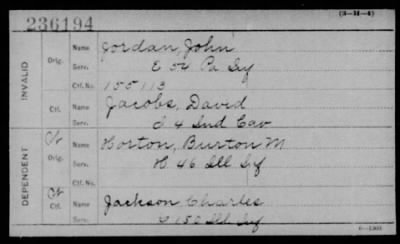 236194
(3-H-4)
INVALID
Orig.
Name Jordan, John
Serv. E 54 Pa Inf
Ctf. No. 155113
Ctf.
Name Jacobs, David
Serv. I 4 Ind Cav
DEPENDENT
Ct
Orig.
Name Horton, Burton M
Serv. H 46 Ill Inf
Ctf. No.
Ct
Ctf.
Name Jackson Charles
Serv. 150 Ill Inf